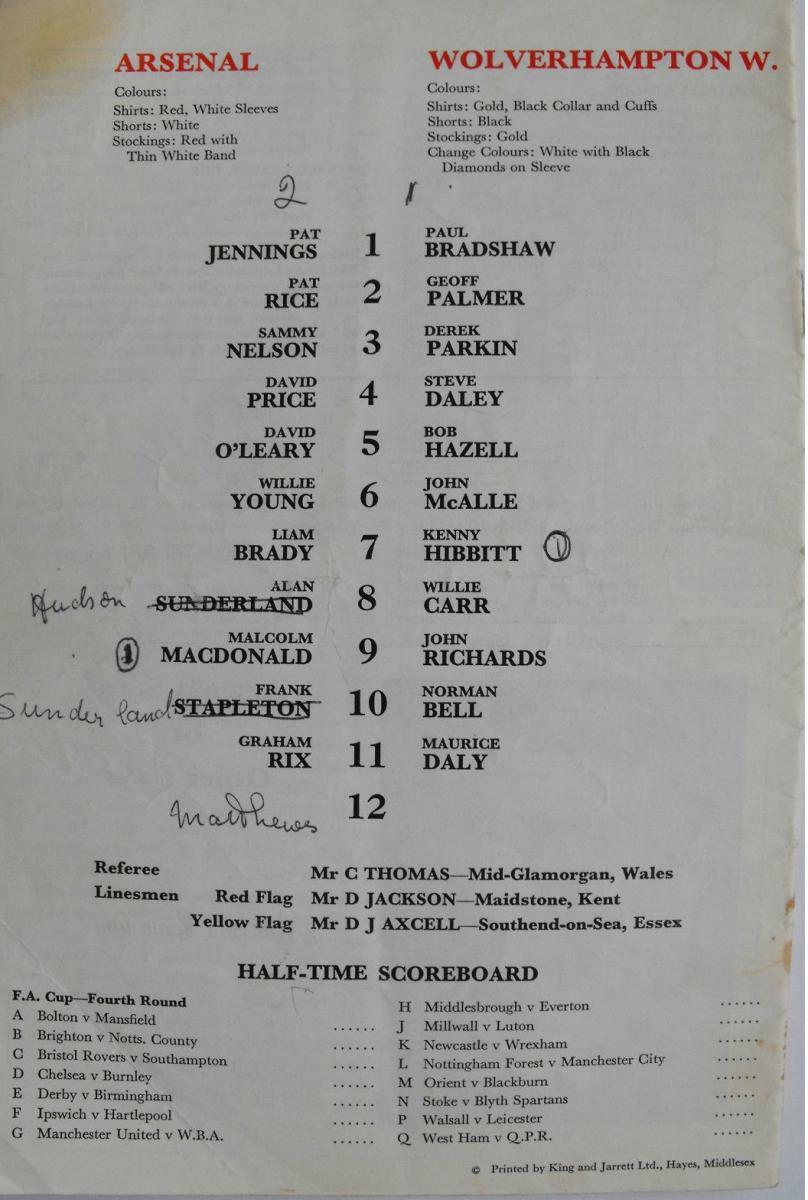 ARSENAL
Colours:
Shirts: Red, White Sleeves
Shorts: White
Stockings: Red with
Thin White Band
WOLVERHAMPTON W.
Colours:
Shirts: Gold, Black Collar and Cuffs
Shorts: Black
Stockings: Gold
Change Colours: White with Black
Diamonds on Sleeve
2 1
PAT PAUL
JENNINGS 1 BRADSHAW
PAT GEOFF
RICE 2 PALMER
SAMMY DEREK
NELSON 3 PARKIN
DAVID STEVE
PRICE 4 DALEY
DAVID BOB
O'LEARY 5 HAZELL
WILLIE JOHN
YOUNG 6 McALLE
LIAM KENNY
BRADY 7 HIBBITT 1
ALAN WILLIE
Hudson SUNDERLAND 8 CARR
MALCOLM JOHN
1 MACDONALD 9 RICHARDS
FRANK NORMAN
Sunderland STAPLETON 10 BELL
GRAHAM MAURICE
RIX 11 DALY
Matthews 12
Referee Mr C THOMAS—Mid-Glamorgan, Wales
Linesmen Red Flag Mr D JACKSON—Maidstone, Kent
Yellow Flag Mr D J AXCELL—Southend-on-Sea, Essex
HALF-TIME SCOREBOARD
F.A. Cup—Fourth Round
A Bolton v Mansfield ......
B Brighton v Notts. County ......
C Bristol Rovers v Southampton ......
D Chelsea v Burnley ......
E Derby v Birmingham ......
F Ipswich v Hartlepool ......
G Manchester United v W.B.A. ......
H Middlesbrough v Everton ......
J Millwall v Luton ......
K Newcastle v Wrexham ......
L Nottingham Forest v Manchester City ......
M Orient v Blackburn ......
N Stoke v Blyth Spartans ......
P Walsall v Leicester ......
Q West Ham v Q.P.R. ......
© Printed by King and Jarrett Ltd., Hayes, Middlesex